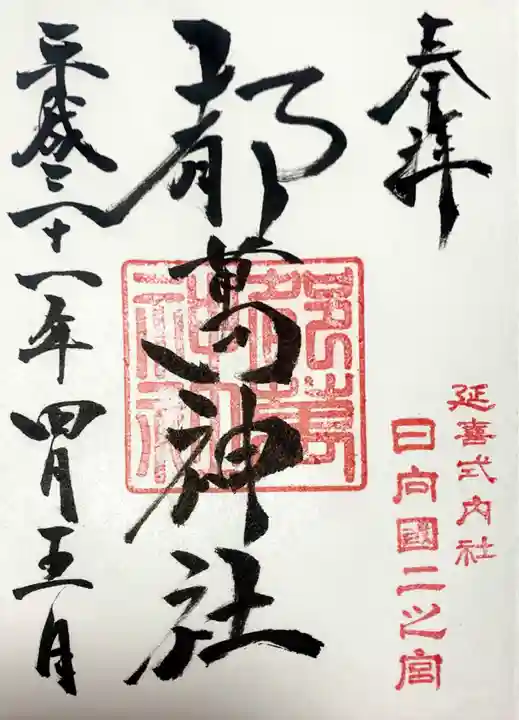 奉拝
延喜式内社
日向國二之宮
都萬神社
都萬神社
平成三十一年四月五日